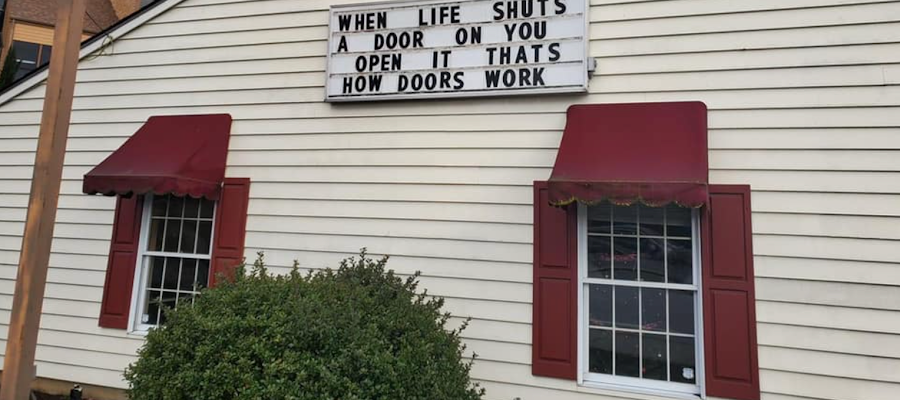 WHEN LIFE SHUTS
A DOOR ON YOU
OPEN IT THATS
HOW DOORS WORK